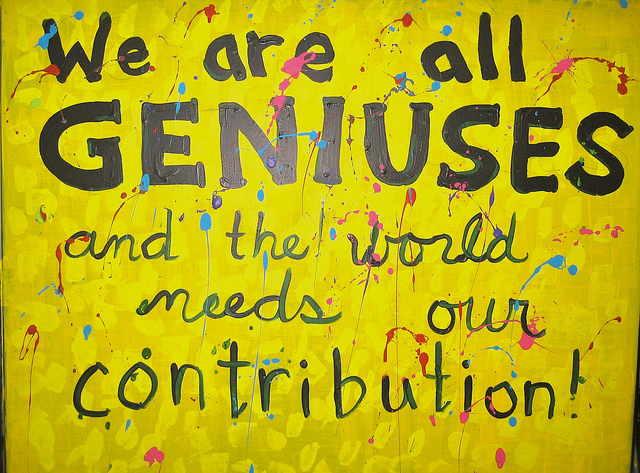 We are all
GENIUSES
and the world
needs our
contribution!